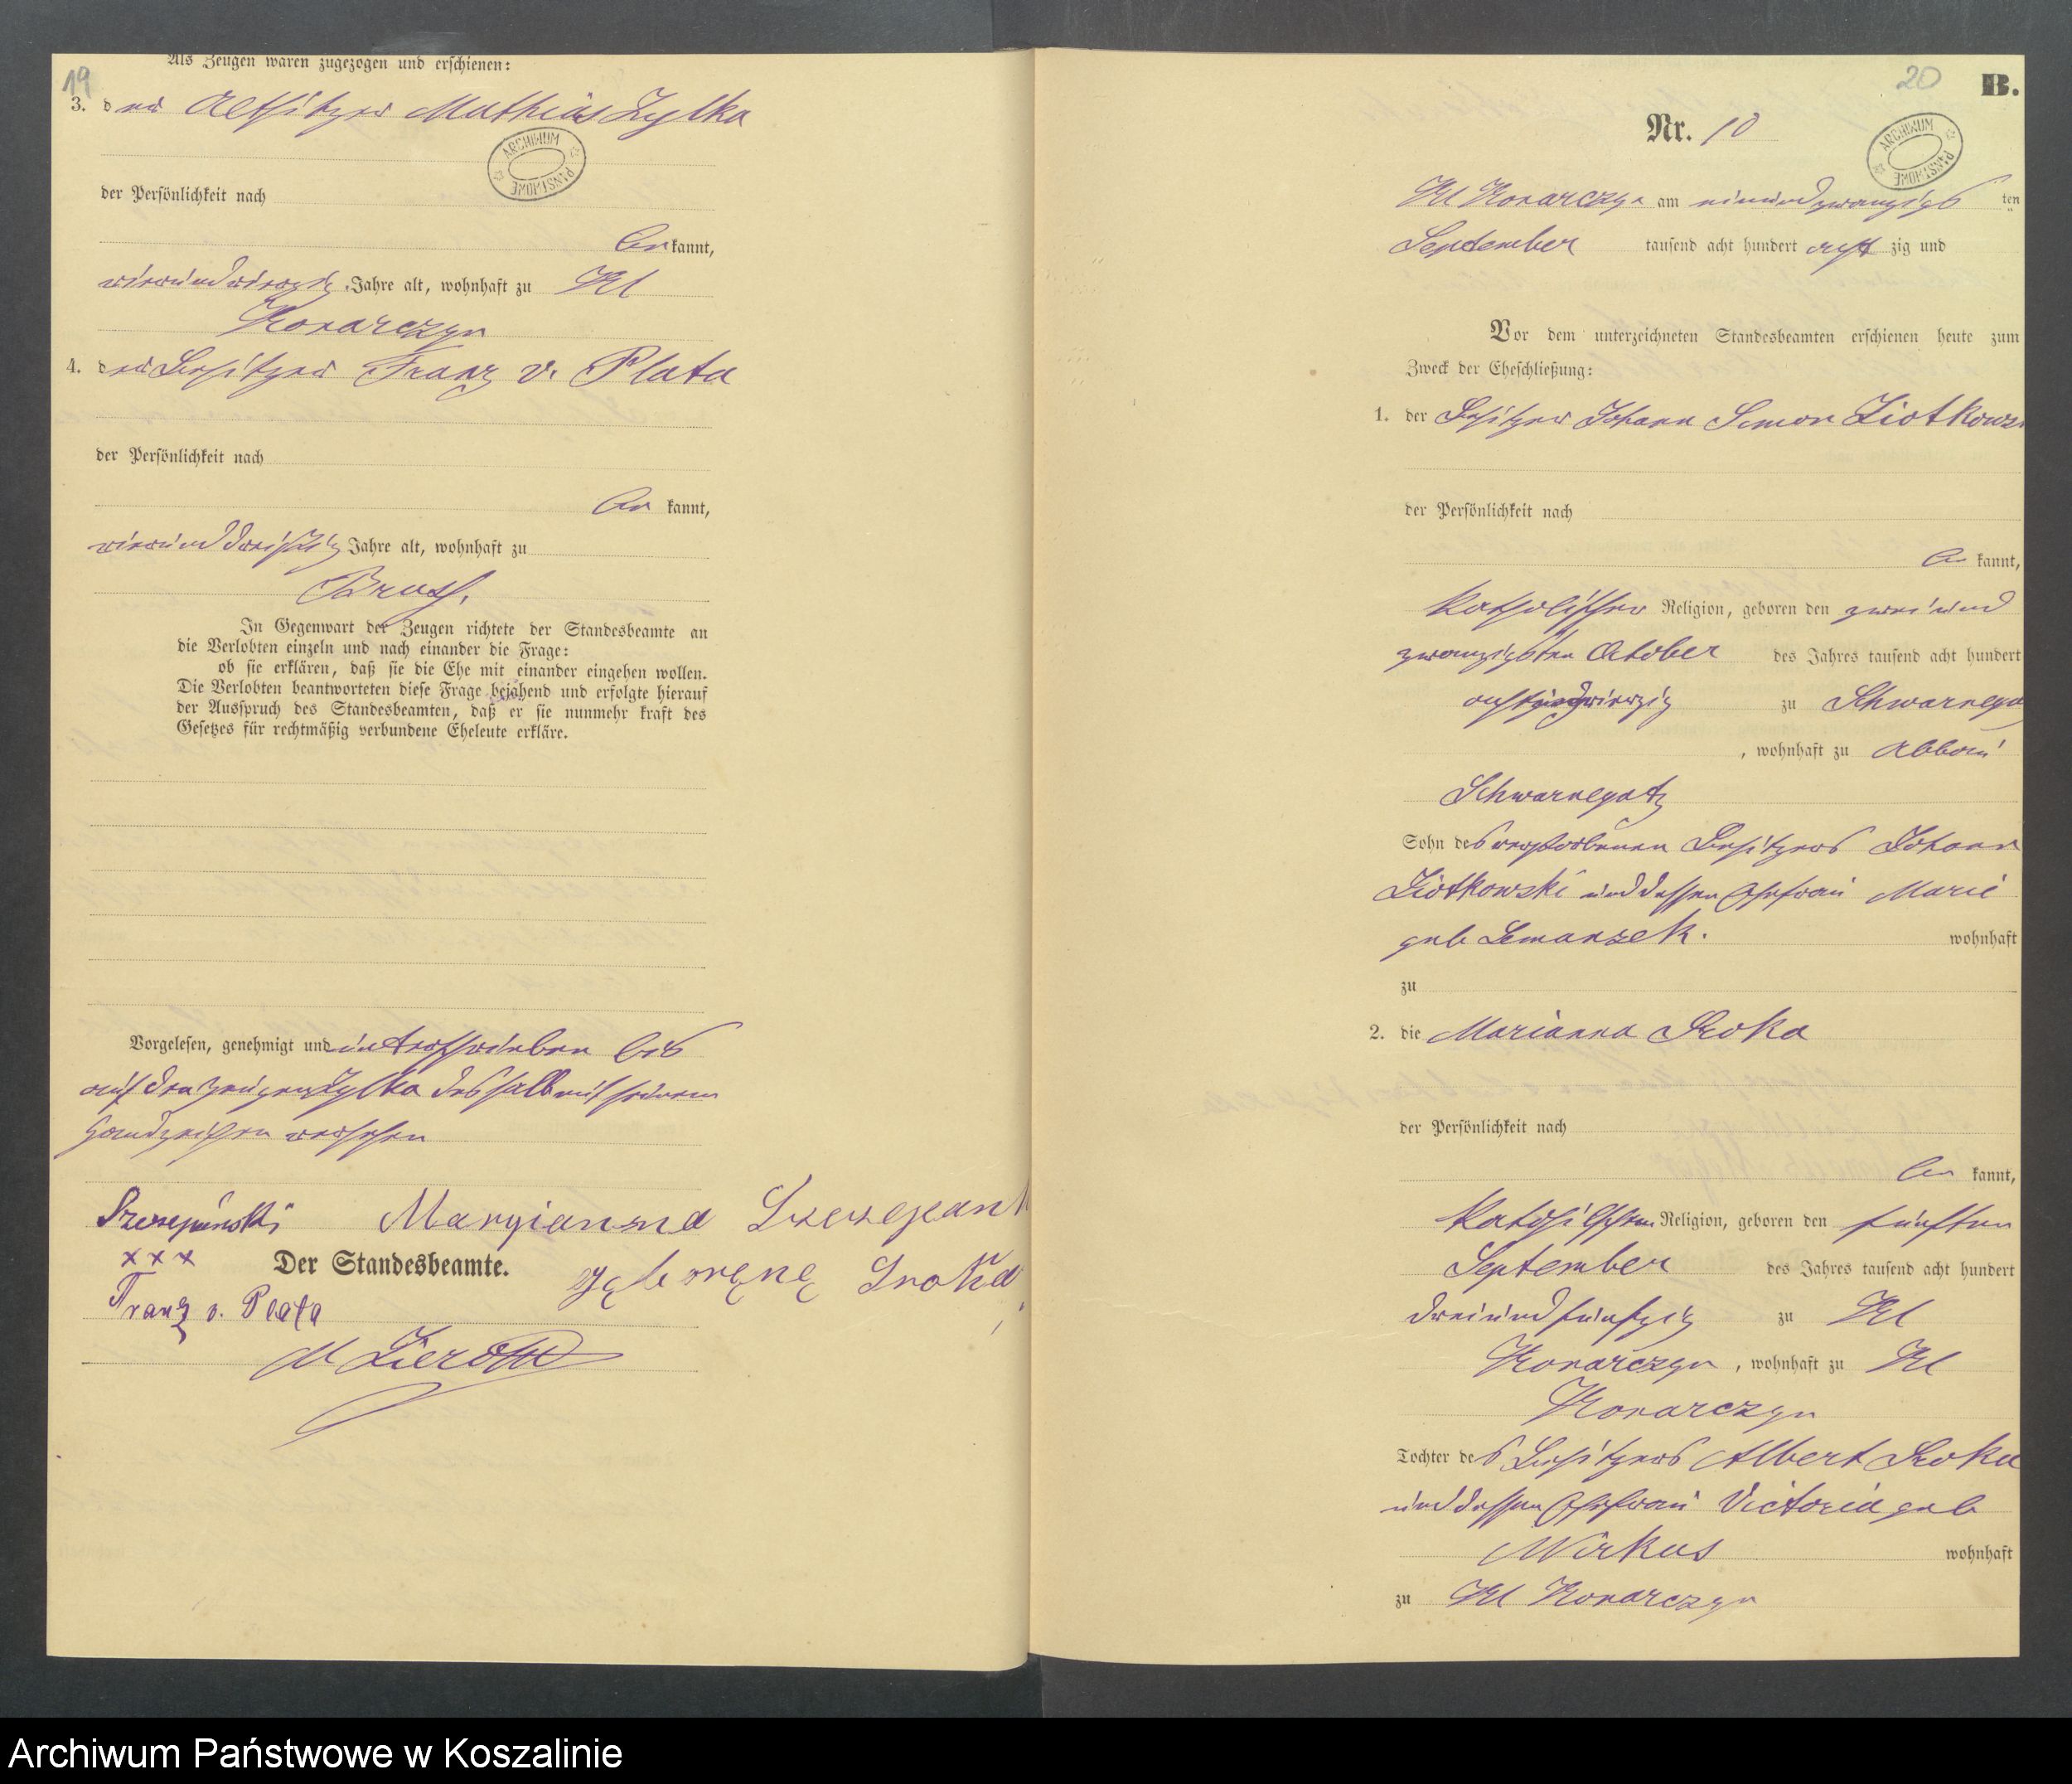 19
Als Zeugen waren zugezogen und erschienen:
3. der Altsitzer Mathias Zylka
ARCHIWUM PAŃSTWOWE
der Persönlichkeit nach
bekannt,
vierundvierzig Jahre alt, wohnhaft zu Kl
Konarczyn
4. der Besitzer Franz v. Plata
der Persönlichkeit nach
be kannt,
vierunddreißig Jahre alt, wohnhaft zu
Bruss.
In Gegenwart der Zeugen richtete der Standesbeamte an
die Verlobten einzeln und nach einander die Frage:
ob sie erklären, daß sie die Ehe mit einander eingehen wollen.
Die Verlobten beantworteten diese Frage bejahend und erfolgte hierauf
der Ausspruch des Standesbeamten, daß er sie nunmehr kraft des
Gesetzes für rechtmäßig verbundene Eheleute erkläre.
Vorgelesen, genehmigt und unterschrieben bis
auf den Zeugen Zylka deshalb mit seinem
Handzeichen versehen
Maryianna
xxx
Der Standesbeamte.
Franz v. Plata
20
B.
Nr. 10
ARCHIWUM PAŃSTWOWE
Kl Konarczyn am neunundzwanzigs ten
September tausend acht hundert acht zig und
Vor dem unterzeichneten Standesbeamten erschienen heute zum
Zweck der Eheschließung:
1. der Besitzer Johann Simon Ziotkowski
der Persönlichkeit nach
be kannt,
katholischer Religion, geboren den zweiund
zwanzigsten October des Jahres tausend acht hundert
achtundvierzig zu Schwarnegatz
, wohnhaft zu Abbau
Schwarnegatz
Sohn des verstorbenen Besitzers Johann
Ziotkowski und dessen Ehefrau Marie
geb Lemanzek. wohnhaft
zu
2. die Marianna Sroka
der Persönlichkeit nach
be kannt,
katholischen Religion, geboren den fünften
September des Jahres tausend acht hundert
dreiundfünfzig zu Kl
Konarczyn, wohnhaft zu Kl
Konarczyn
Tochter des Besitzers Albert Sroka
und dessen Ehefrau Victoria geb
Wirkus wohnhaft
zu Kl Konarczyn
Archiwum Państwowe w Koszalinie